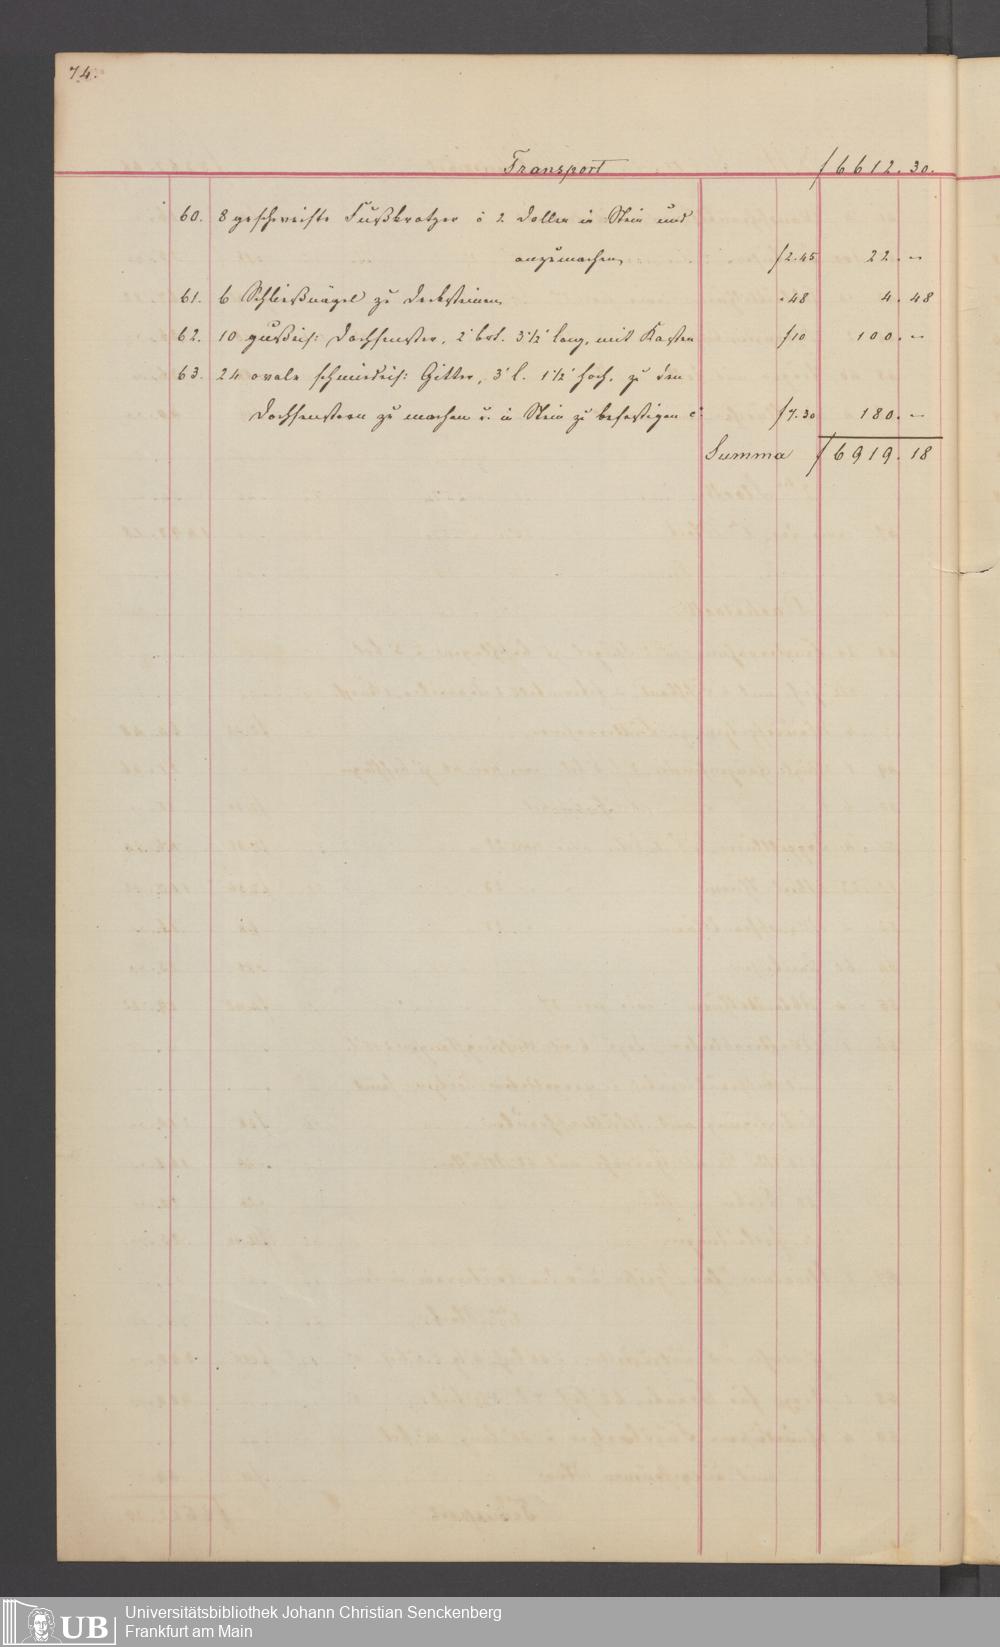 74.
Transport f 6612.30.
60. 8 geschweifte Fußkratzer à 2 Dollen in Stein und
anzumachen f 2.45 22.--
61. 6 Schließnägel zu Decksteinen -48 4.48
62. 10 gußeis: Dachfenster, 2' brt. 3 1/2' lang, mit Kasten f 10 100.--
63. 24 ovale schmiedeis: Gitter, 3' l. 1 1/2' hoch, zu den
Dachfenstern zu machen u. in Stein zu befestigen à f 7.30 180.--
Summa f 6919.18
UB Universitätsbibliothek Johann Christian Senckenberg
Frankfurt am Main